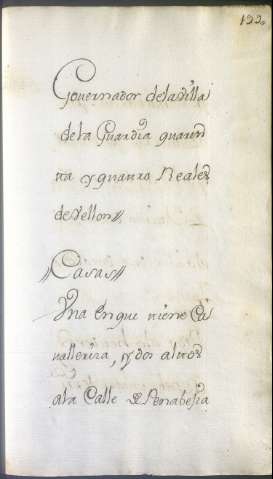 122.
Governador de la Villa
de la Guardia quaren
ta y quatro Reales
de Vellon//
//Casas//
Una en que tiene Ca
valleriza, y dos altos
a la Calle de Penabesia